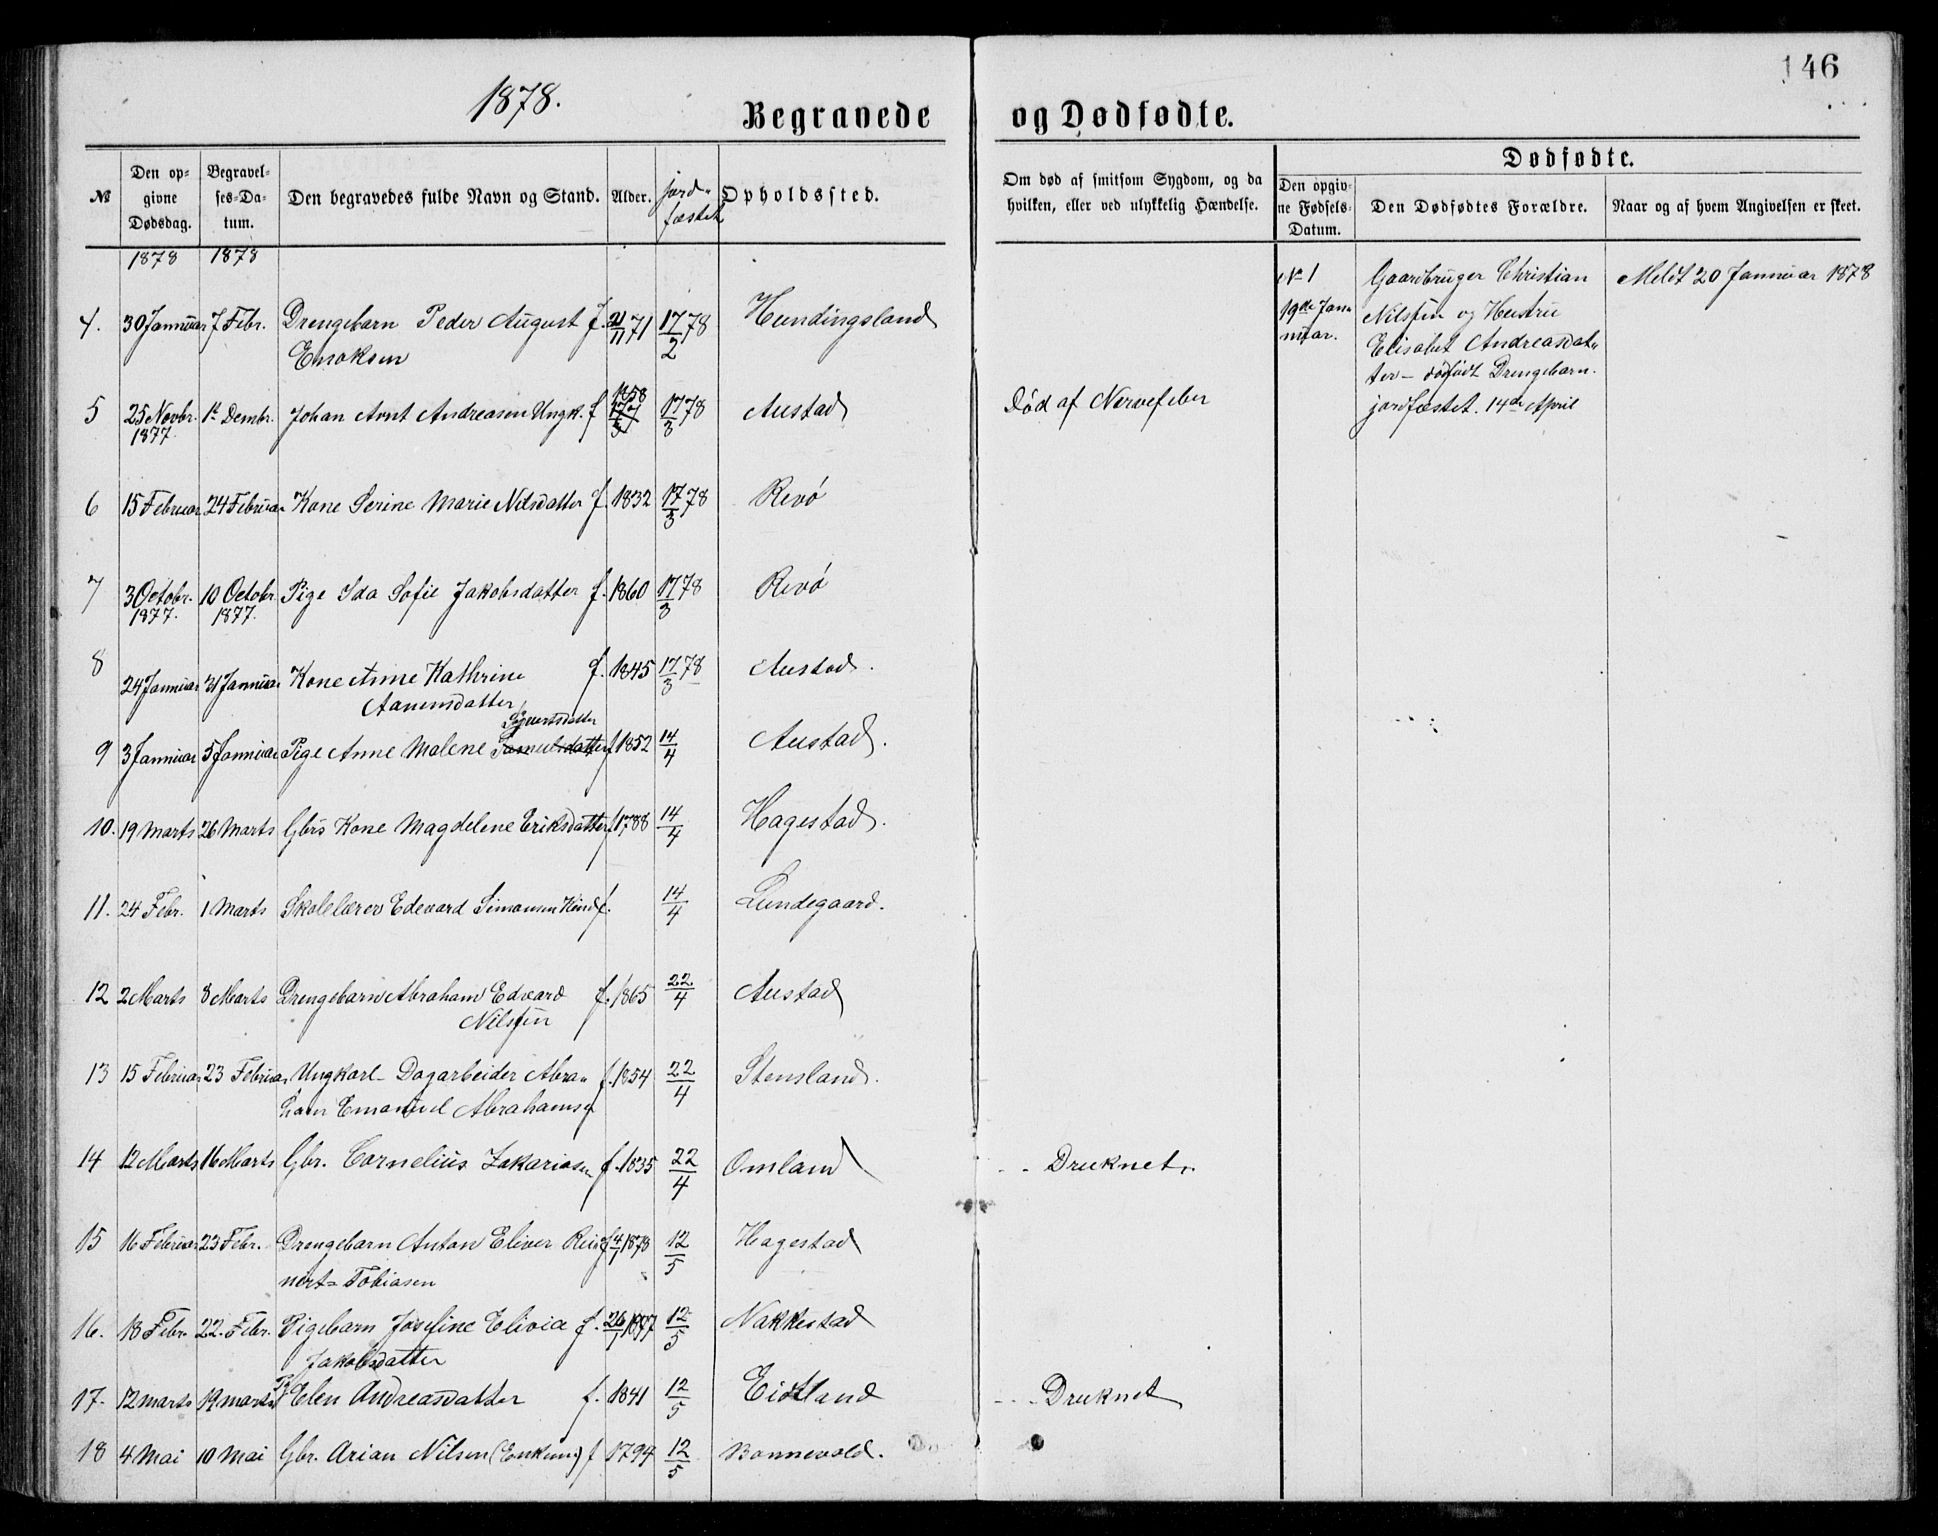 146
1878.
Begravede og Dødfødte.
№
Den opgivne Dødsdag.
Begravelses-Datum.
Den begravedes fulde Navn og Stand.
Alder.
jord-
fæstet
Opholdssted.
Om død af smitsom Sygdom, og da
hvilken, eller ved ulykkelig Hændelse.
Dødfødte.
Den opgivne Fødsels-Datum.
Den Dødfødtes Forældre.
Naar og af hvem Angivelsen er skeet.
1878 1878
4. 30 Januar 7 Febr. Drengebarn Peder August f. 21/11 71 17/2 78 Hundingsland
Enoksen
5 25 Novbr. 1ste Dembr. Johan Arnt Andreasen Ungk. f 1858 17/3 78 Austad Død af Nervefeber
1877.
6 15 Februar 24 Februar Kone Serine Marie Nilsdatter f. 1832 17/3 78 Revø
7 3 Octobr. 10 Octobr Pige Ida Sofie Jakobsdatter f. 1860 17/3 78 Revø
1877. 1877.
8 24 Januar 31 Januar Kone Anne Kathrine f. 1845 17/3 78 Austad.
Aanensdatter
Syvertsdatter
9 3 Januar 5 Januar Pige Anne Malene Samuelsdatter f 1852 14/4 Austad.
10. 19 Marts 26 Marts Gbrs Kone Magdelene Eriksdatter f 1788 14/4 Hagestad.
11. 24 Febr. 1 Marts Skolelærer Edevard Simonsen f. 14/4 Lundegaard.
12 2 Marts 8 Marts Drengebarn Abraham Edvard f. 1865 22/4 Austad
Nilsen
13 15 Februar 23 Februar Ungkarl- Dagarbeider Abra- f. 1854 22/4 Stensland.
ham Emanuel Abrahamsen
14 12 Marts 16 Marts Gbr. Cornelius Zakariasen f. 1835 22/4 Omland - - Druknet.
15 16 Februar 23 Febr. Drengebarn Anton Eliver Rei- f 4/1 1878 12/5 Hagestad
nert- Tobiasen
16. 18 Febr. 22. Febr. Pigebarn Josefine Elivia f. 26/1 1877 12/5 Nakkestad
Jakobsdatter
17. 12 marts 19 marts Elen Andreasdatter f. 1841 12/5 Eidland - - - Druknet
18 4 Mai 10 Mai Gbr. Arian Nilsen (Enkem.) f 1794 12/5 Bonnevold.
№ 1
19de Jan-
nuar.
Gaardbruger Christian
Nilsen og Hustru
Elisabet Andreasdat-
ter - dødfødt Drengebarn.
jordfæstet. 14de April
Meldt 20 Januar 1878